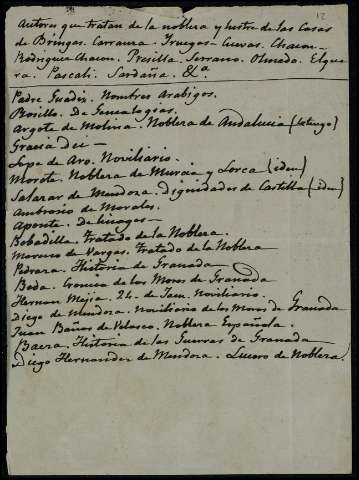 12
Autores que tratan de la nobleza y lustre de las Casas
de Bringas. Carranza. Truegas. Cuevas. Chacon.
Rodriguez Chacon. Presilla. Serrano. Olmedo. Elgue
ra. Pascali. Sardaña. &a
Padre Guadix. Nombres Arabigos.
Rosillo. De Genealogias.
Argote de Molina. Nobleza de Andalucia (lo tengo)
Gracia Dei —
Lope de Aro. Noviliario.
Morote. Nobleza de Murcia y Lorca (iden)
Salazar de Mendoza. Dignidades de Castilla (iden)
Ambrosio de Morales.
Aponte. De linages —
Bobadilla. Tratado de la Nobleza.
Moreno de Vargas. Tratado de la Nobleza
Pedraza. Historia de Granada
Beda. Cronica de los Moros de Granada
Hernan Mejia. 24. de Jaen. Noviliario.
Diego de Mendoza. Noviliario de los Moros de Granada
Juan Baños de Velasco. Nobleza Española.
Baeza. Historia de las Guerras de Granada —
Diego Hernandez de Mendoza. Lucero de Nobleza.